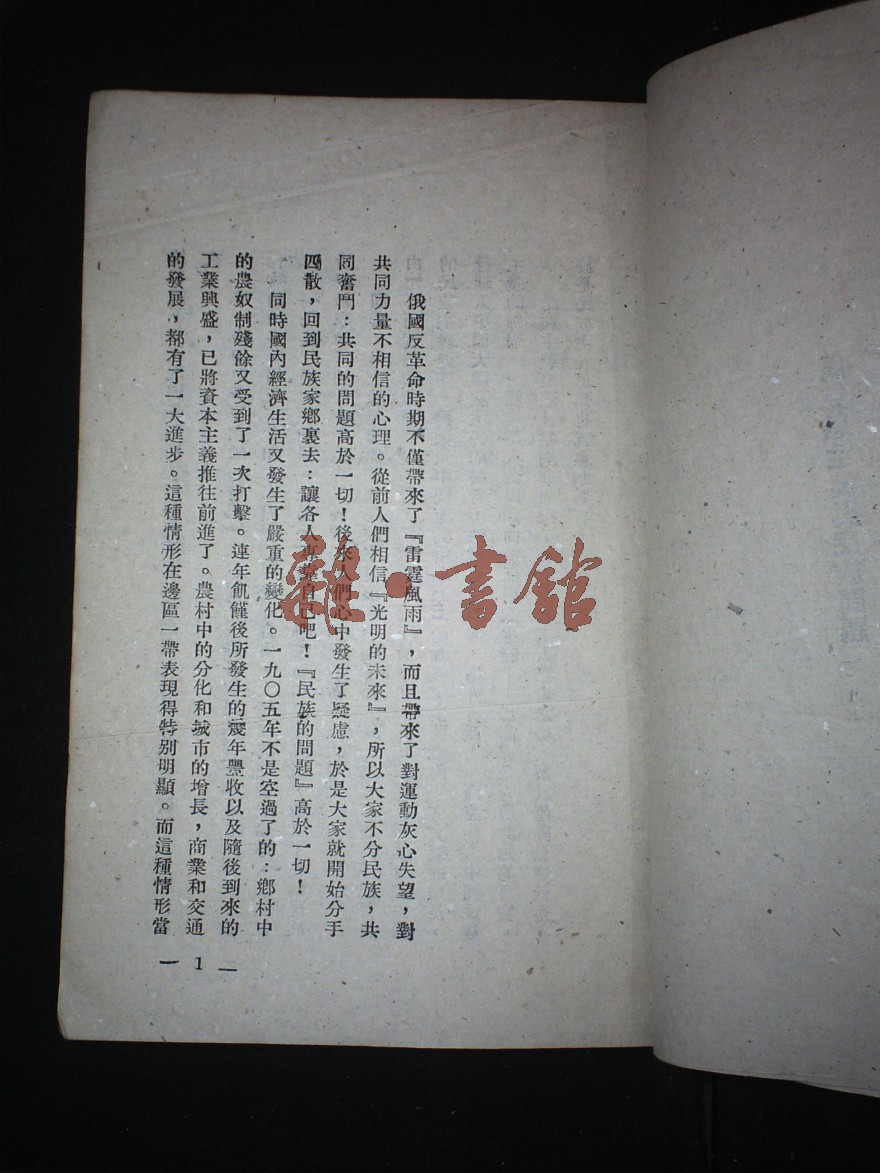 俄國反革命時期不僅帶來了『雷霆風雨』，而且帶來了對運動灰心失望，對
共同力量不相信的心理。從前人們相信『光明的未來』，所以大家不分民族，共
同奮鬥：共同的問題高於一切！後來人們心中發生了疑慮，於是大家就開始分手
四散，回到民族家鄉裏去：讓各人專靠自己吧！『民族的問題』高於一切！
同時國內經濟生活又發生了嚴重的變化。一九〇五年不是空過了的：鄉村中
的農奴制殘餘又受到了一次打擊。連年飢饉後所發生的幾年豐收以及隨後到來的
工業興盛，已將資本主義推往前進了。農村中的分化和城市的增長，商業和交通
的發展，都有了一大進步。這種情形在邊區一帶表現得特別明顯。而這種情形當
— 1 —
雜·書館